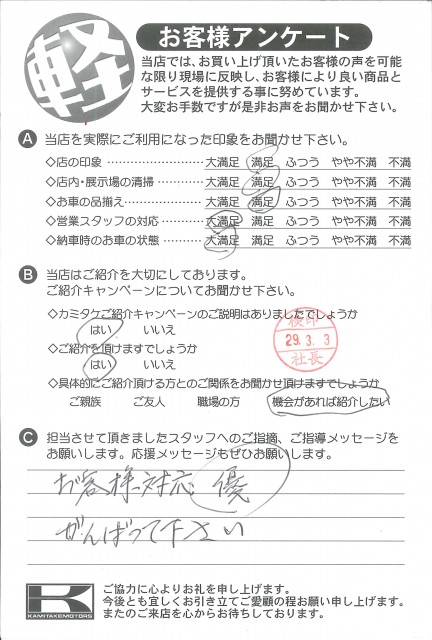 軽
お客様アンケート
当店では、お買い上げ頂いたお客様の声を可能
な限り現場に反映し、お客様により良い商品と
サービスを提供する事に努めています。
大変お手数ですが是非お声をお聞かせ下さい。
A 当店を実際にご利用になった印象をお聞かせ下さい。
◇店の印象 ……………………… 大満足 満足 ふつう やや不満 不満
◇店内・展示場の清掃 ………… 大満足 満足 ふつう やや不満 不満
◇お車の品揃え ………………… 大満足 満足 ふつう やや不満 不満
◇営業スタッフの対応 ………… 大満足 満足 ふつう やや不満 不満
◇納車時のお車の状態 ………… 大満足 満足 ふつう やや不満 不満
B 当店はご紹介を大切にしております。
ご紹介キャンペーンについてお聞かせ下さい。
◇カミタケご紹介キャンペーンのご説明はありましたでしょうか
はい いいえ
◇ご紹介を頂けますでしょうか
はい いいえ
検印
29.3.3
社長
◇具体的にご紹介頂ける方とのご関係をお聞かせ頂けますでしょうか
ご親族 ご友人 職場の方 機会があれば紹介したい
C 担当させて頂きましたスタッフへのご指摘、ご指導メッセージを
お願いします。応援メッセージもぜひお願いします。
お客様対応 優
がんばって下さい
K
KAMITAKEMOTORS
ご協力に心よりお礼を申し上げます。
今後とも宜しくお引き立てご愛顧の程お願い申し上げます。
またのご来店を心からお待ちしております。